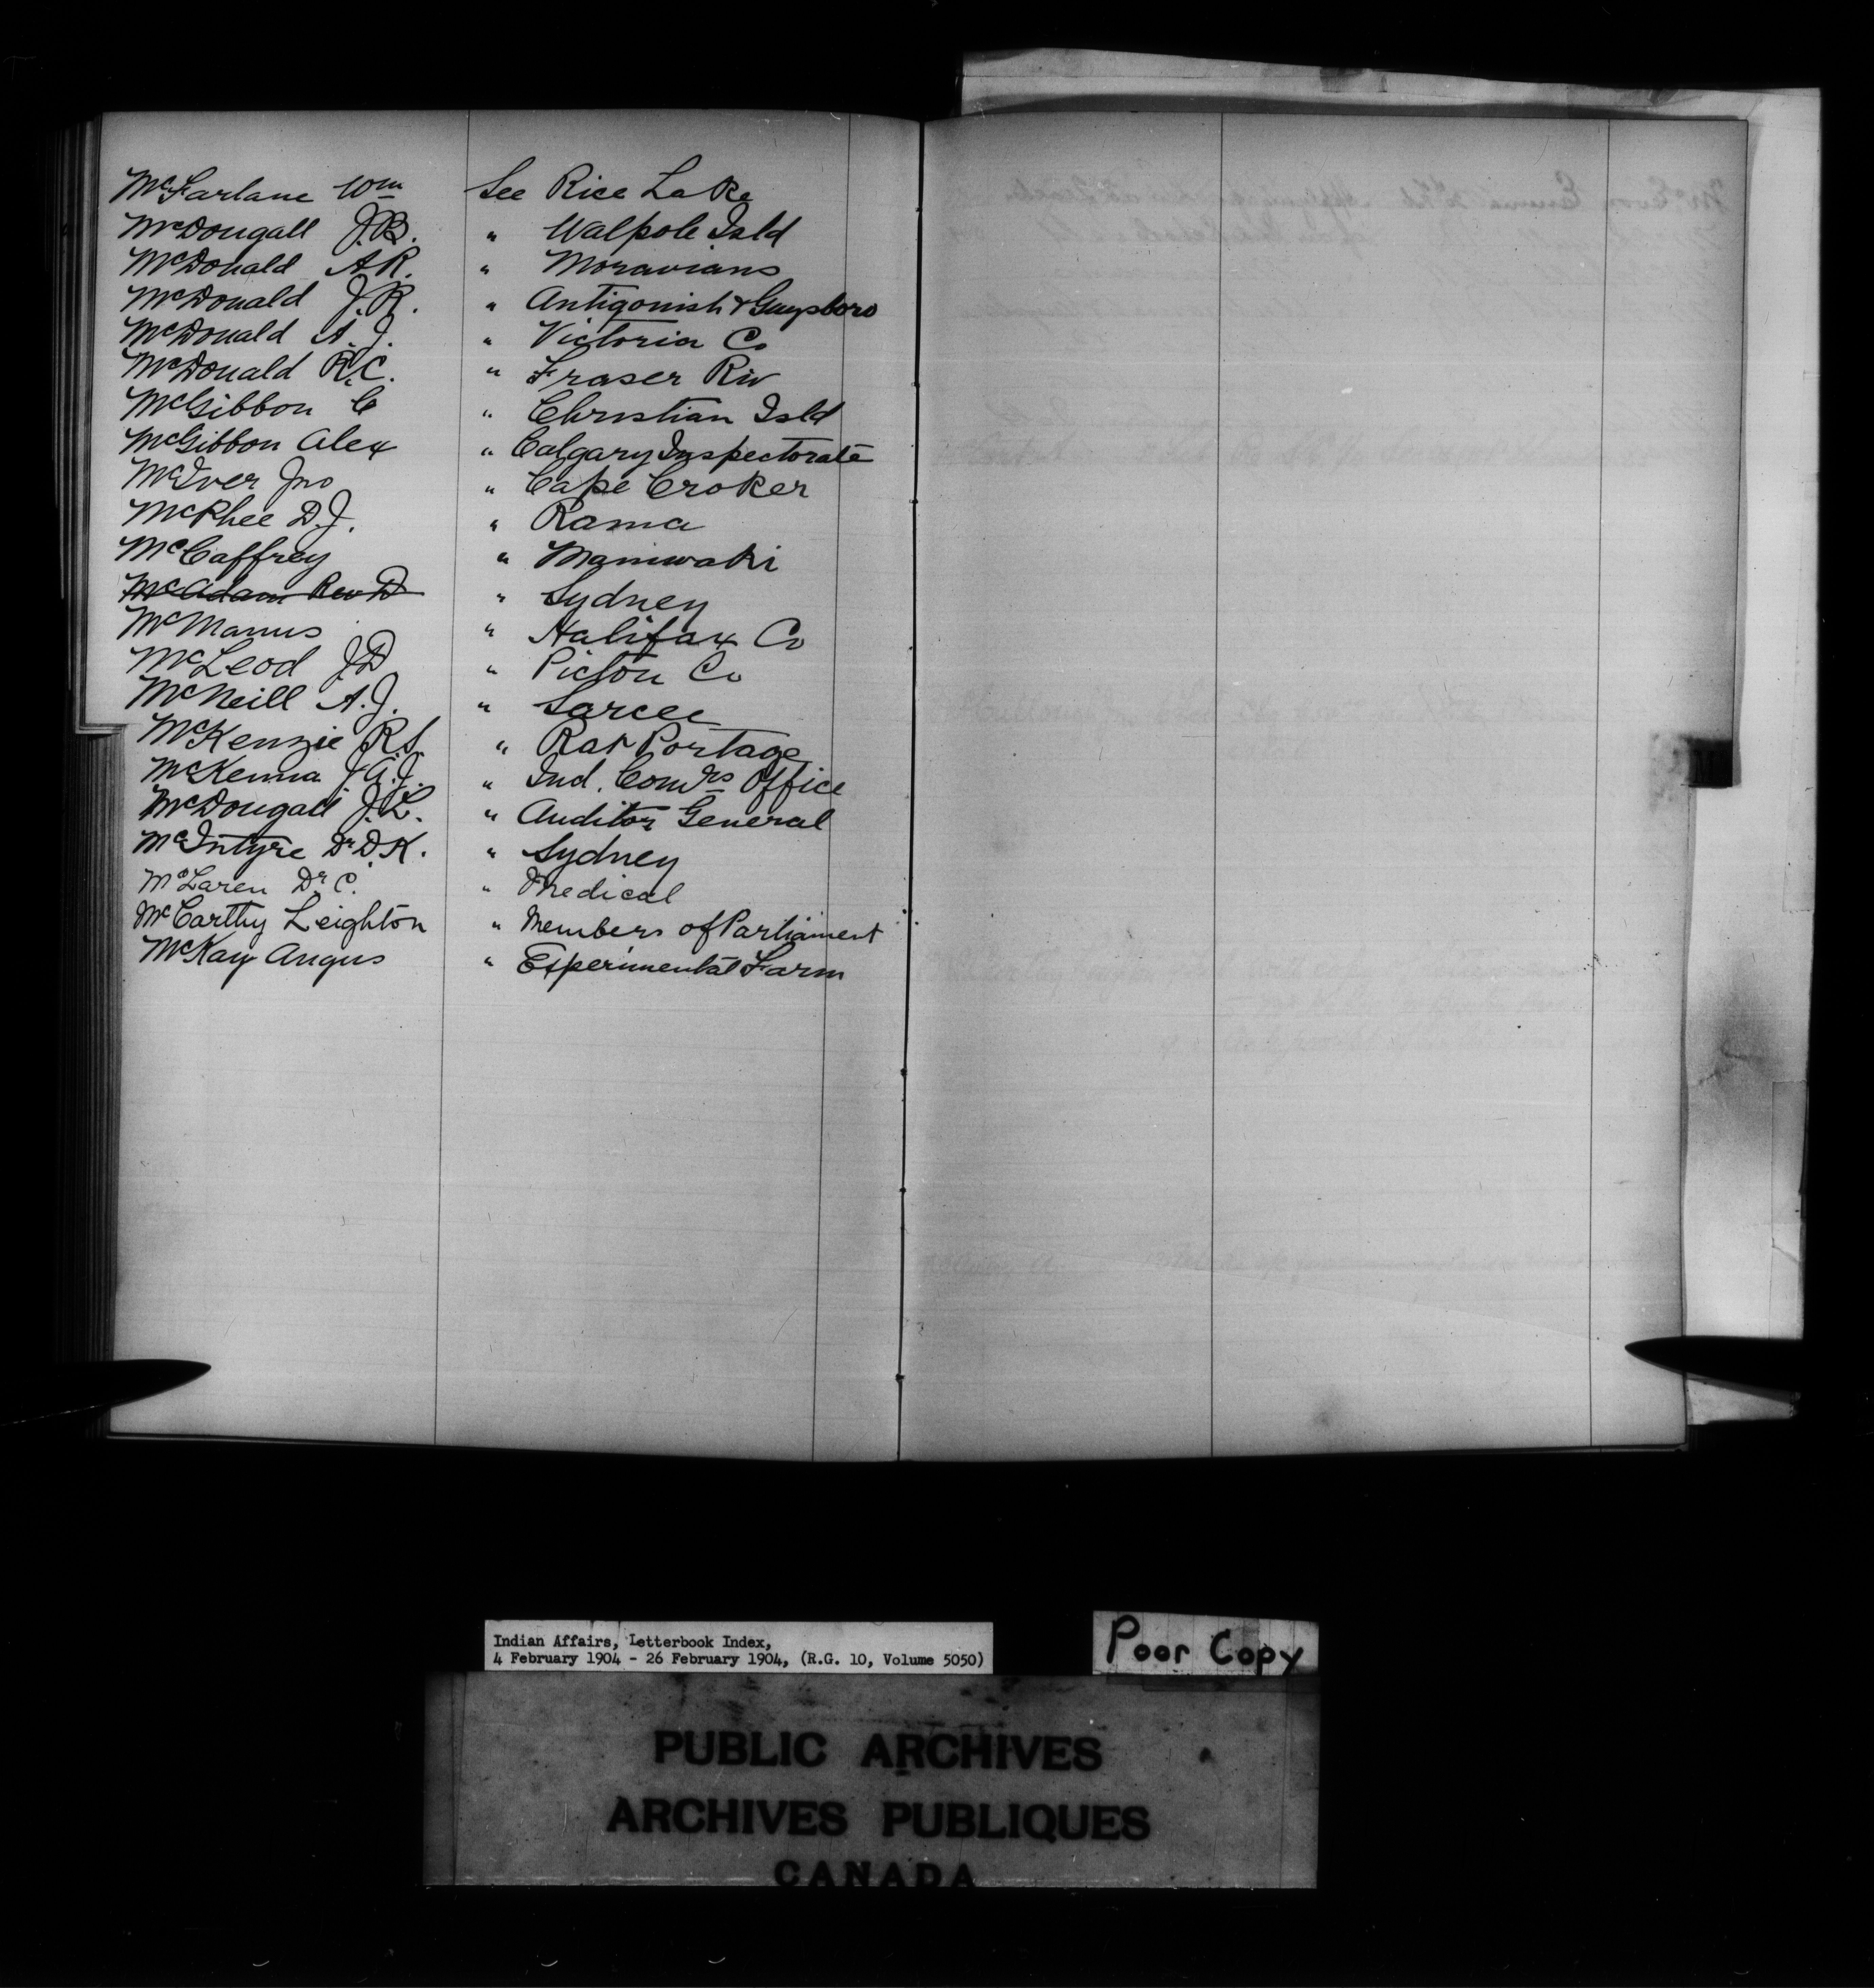 McFarlane Wm See Rice Lake
McDougall J.B. " Walpole Isld
McDonald A.R. " Moravians
McDonald J.R. " Antigonish & Guysboro
McDonald A.J. " Victoria Co
McDonald R.C. " Fraser Riv
McGibbon C " Christian Isld
McGibbon Alex " Calgary Inspectorate
McIver Jno " Cape Croker
McPhee D.J. " Rama
McCaffrey " Maniwaki
McAdam Rev D " Sydney
McManus " Halifax Co
McLeod J D " Pictou Co
McNeill A.J. " Sarcee
McKenzie R S. " Rat Portage
McKenna J.A.J. " Ind. Comrs Office
McDougall J.L. " Auditor General
McIntyre Dr D.K. " Sydney
McLaren Dr C. " Medical
McCarthy Leighton " Members of Parliament
McKay Angus " Experimental Farm
M
Indian Affairs, Letterbook Index,
4 February 1904 - 26 February 1904, (R.G. 10, Volume 5050)
Poor Copy
PUBLIC ARCHIVES
ARCHIVES PUBLIQUES
CANADA